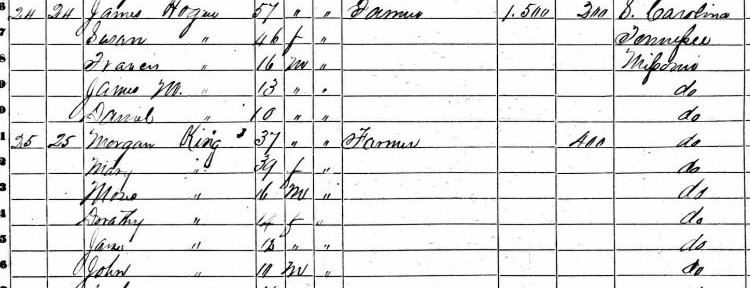 6 24 24 James Hogue 57 " " Farmer 1.500 300 S. Carolina
7 Susan " 46 f " Tennessee
8 Francis " 16 m " Missouri
9 James M. " 13 " " do
0 Daniel " 10 " " do
1 25 25 Morgan King 37 " " Farmer 400 do
2 Mary " 39 f " do
3 " 16 m " do
4 Dorathy " 14 f " do
5 " " " do
6 John " 10 m " do